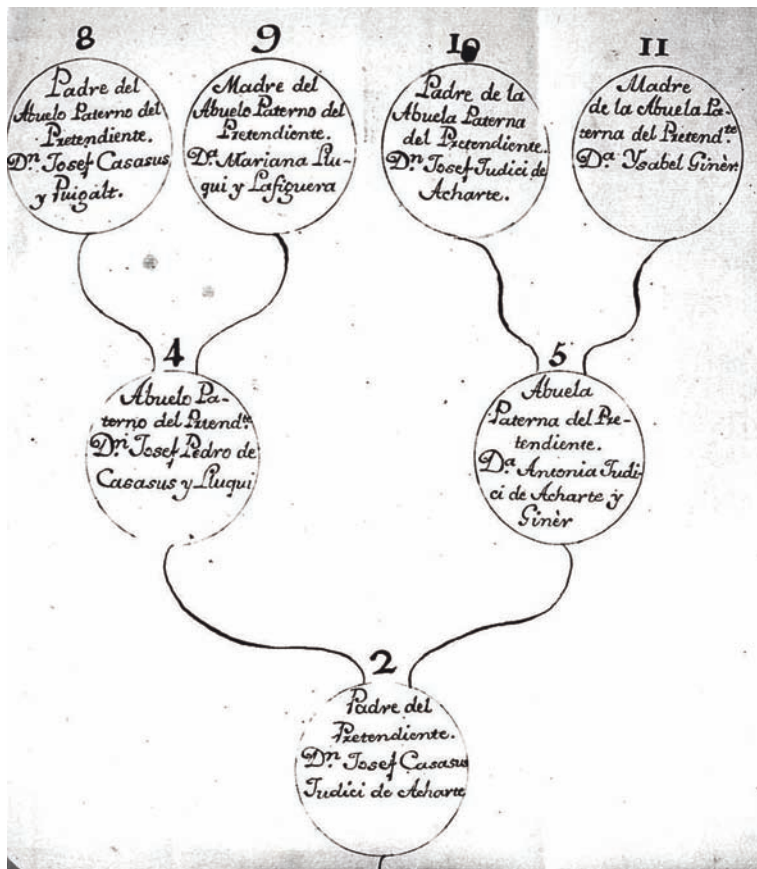 8
Padre del
Abuelo Paterno del
Pretendiente.
Dn. Josef Casasus
y Puigalt.
9
Madre del
Abuelo Paterno del
Pretendiente.
Da. Mariana Llu-
qui y Lafiguera
10
Padre de la
Abuela Paterna
del Pretendiente.
Dn. Josef Judici de
Acharte.
11
Madre
de la Abuela Pa-
terna del Pretendte
Da. Ysabel Ginèr
4
Abuelo Pa-
terno del Pretendte
Dn. Josef Pedro de
Casasus y Lluqui
5
Abuela
Paterna del Pre-
tendiente.
Da. Antonia Judi-
ci de Acharte y
Ginèr
2
Padre del
Pretendiente.
Dn. Josef Casasus
Judici de Acharte